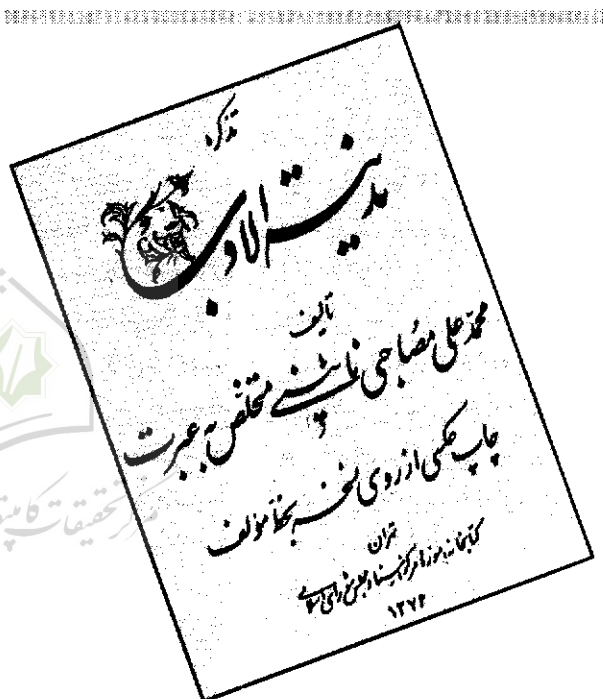 تذکره
مدینة الادب
تألیف
محمد علی مصباحی نائینی متخلص به عبرت
چاپ عکسی از روی نسخه بخط مؤلف
تهران
کتابخانه، موزه و مرکز اسناد مجلس شورای اسلامی
۱۳۷۶
مرکز تحقیقات کامپیو